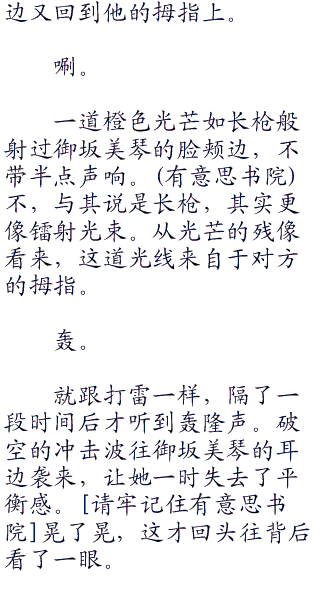 边又回到他的拇指上。
唰。
一道橙色光芒如长枪般
射过御坂美琴的脸颊边，不
带半点声响。(有意思书院)
不，与其说是长枪，其实更
像镭射光束。从光芒的残像
看来，这道光线来自于对方
的拇指。
轰。
就跟打雷一样，隔了一
段时间后才听到轰隆声。破
空的冲击波往御坂美琴的耳
边袭来，让她一时失去了平
衡感。[请牢记住有意思书
院]晃了晃，这才回头往背后
看了一眼。